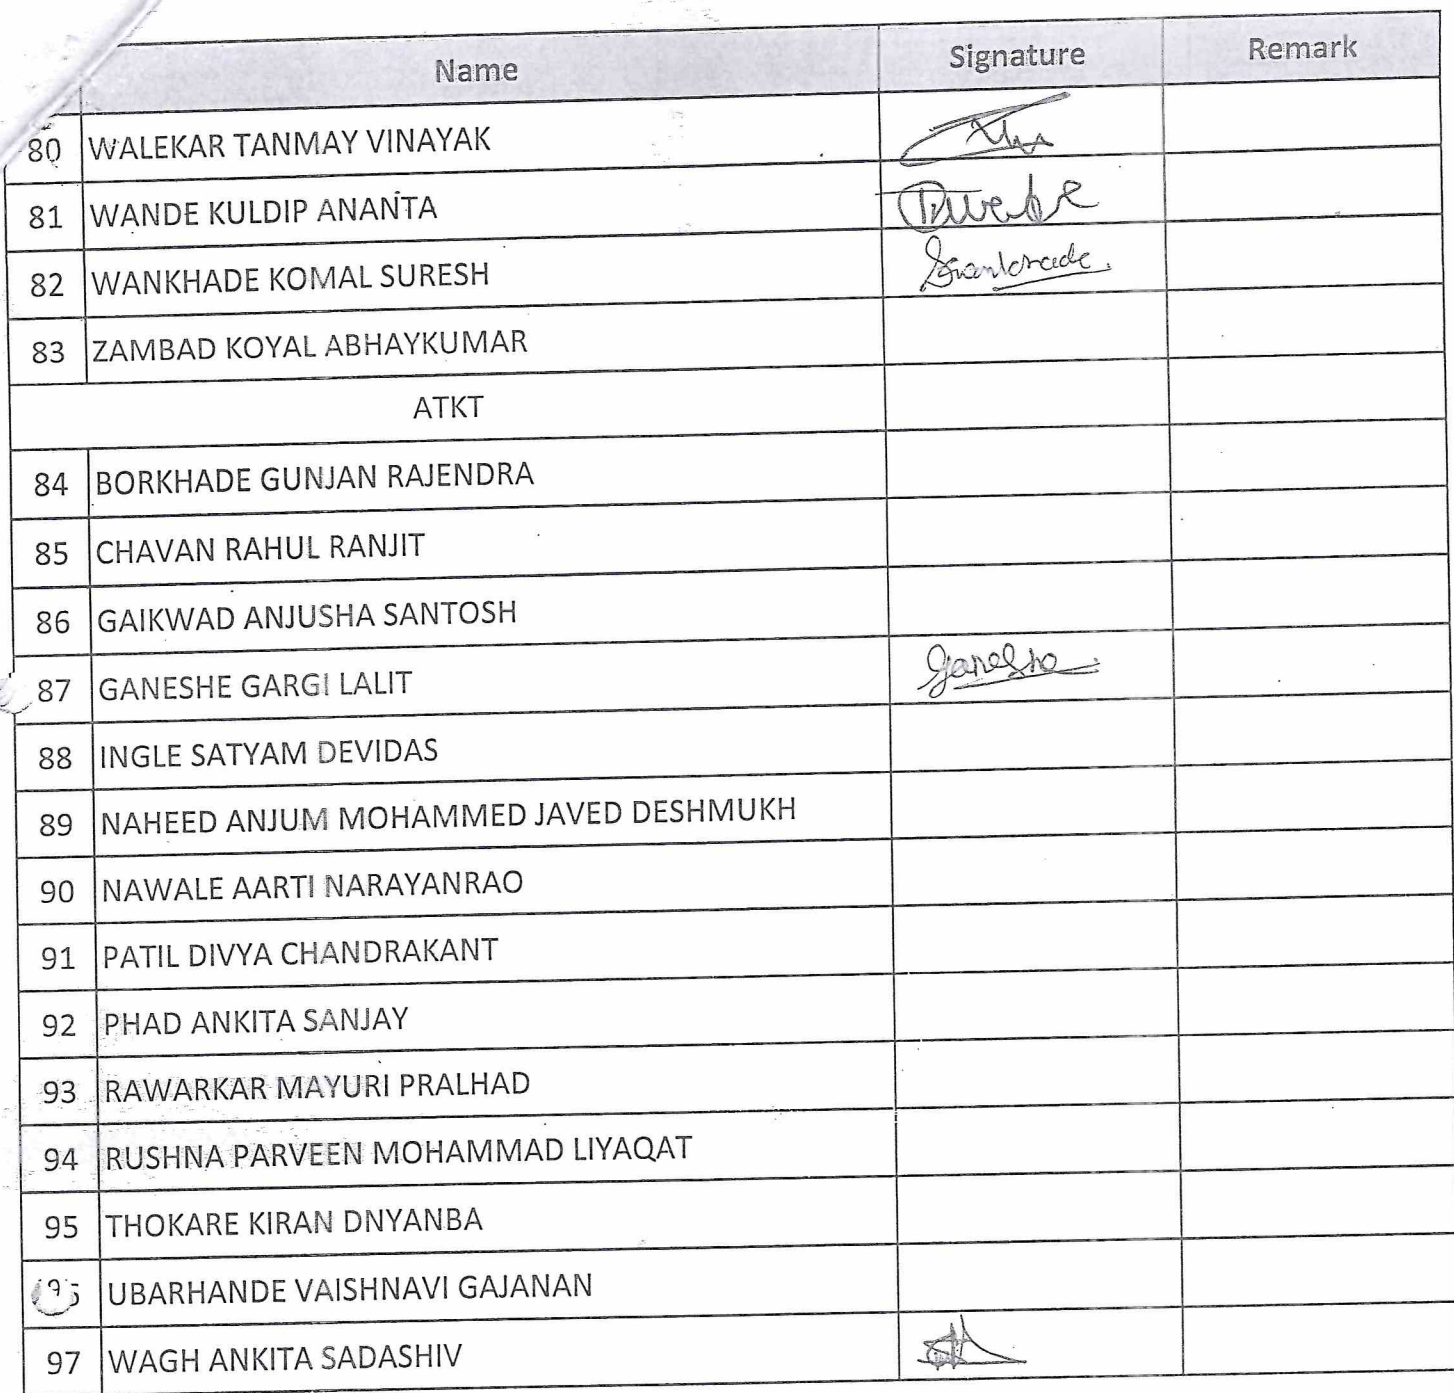 Name Signature Remark
80 WALEKAR TANMAY VINAYAK
81 WANDE KULDIP ANANTA
82 WANKHADE KOMAL SURESH
83 ZAMBAD KOYAL ABHAYKUMAR
ATKT
84 BORKHADE GUNJAN RAJENDRA
85 CHAVAN RAHUL RANJIT
86 GAIKWAD ANJUSHA SANTOSH
87 GANESHE GARGI LALIT
88 INGLE SATYAM DEVIDAS
89 NAHEED ANJUM MOHAMMED JAVED DESHMUKH
90 NAWALE AARTI NARAYANRAO
91 PATIL DIVYA CHANDRAKANT
92 PHAD ANKITA SANJAY
93 RAWARKAR MAYURI PRALHAD
94 RUSHNA PARVEEN MOHAMMAD LIYAQAT
95 THOKARE KIRAN DNYANBA
UBARHANDE VAISHNAVI GAJANAN
97 WAGH ANKITA SADASHIV